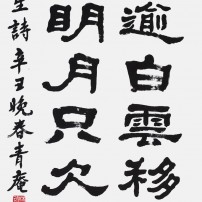 逾白雲移
明月只欠
生詩辛丑晚春青庵